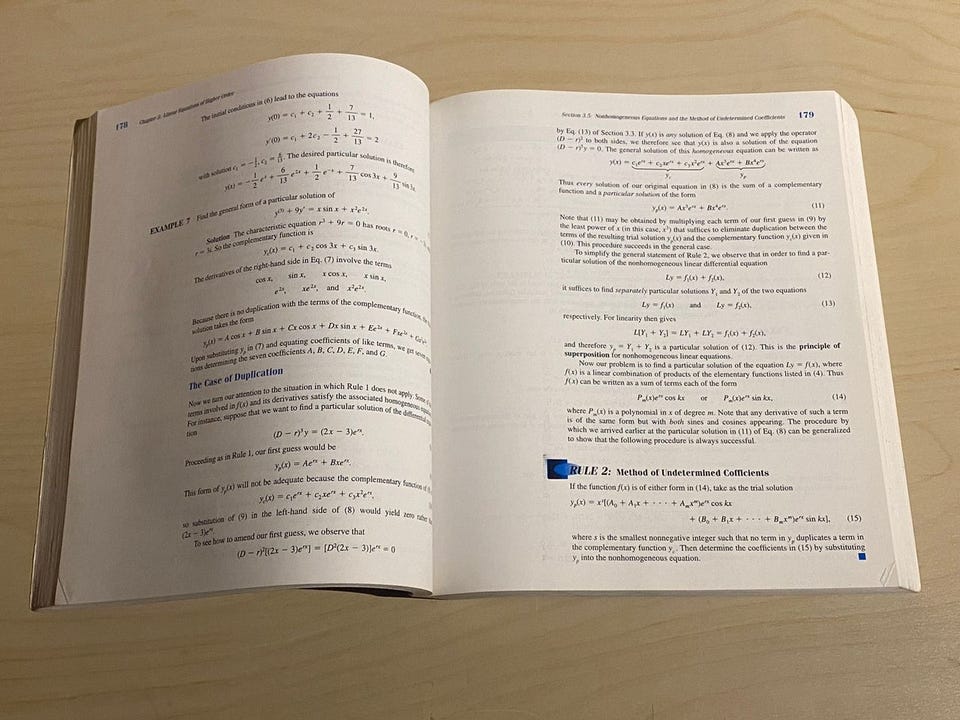 178 Chapter 3: Linear Equations of Higher Order
The initial conditions in (6) lead to the equations
y(0) = c₁ + c₂ + 1/2 + 7/13 = 1,
y′(0) = c₁ + 2c₂ − 1/2 + 27/13 = 2
with solution c₁ = −1/2, c₂ = 6/13. The desired particular solution is therefore
y(x) = −1/2 eˣ + 6/13 e²ˣ + 1/2 e⁻ˣ + 7/13 cos 3x + 9/13 sin 3x.
EXAMPLE 7 Find the general form of a particular solution of
y⁽³⁾ + 9y′ = x sin x + x²e²ˣ.
Solution The characteristic equation r³ + 9r = 0 has roots r = 0, r =
r = 3i. So the complementary function is
y_c(x) = c₁ + c₂ cos 3x + c₃ sin 3x.
The derivatives of the right-hand side in Eq. (7) involve the terms
cos x, sin x, x cos x, x sin x,
e²ˣ, xe²ˣ, and x²e²ˣ.
Because there is no duplication with the terms of the complementary function, the
solution takes the form
y_p(x) = A cos x + B sin x + Cx cos x + Dx sin x + Ee²ˣ + Fxe²ˣ + Gx²e²ˣ
Upon substituting y_p in (7) and equating coefficients of like terms, we get seven
tions determining the seven coefficients A, B, C, D, E, F, and G.
The Case of Duplication
Now we turn our attention to the situation in which Rule 1 does not apply: Some of
terms involved in f(x) and its derivatives satisfy the associated homogeneous
For instance, suppose that we want to find a particular solution of the differential
tion
(D − r)³y = (2x − 3)eʳˣ.
Proceeding as in Rule 1, our first guess would be
y_p(x) = Aeʳˣ + Bxeʳˣ.
This form of y_p(x) will not be adequate because the complementary function of
y_c(x) = c₁eʳˣ + c₂xeʳˣ + c₃x²eʳˣ,
so substitution of (9) in the left-hand side of (8) would yield zero rather
(2x − 3)eʳˣ.
To see how to amend our first guess, we observe that
(D − r)²[(2x − 3)eʳˣ] = [D²(2x − 3)]eʳˣ = 0
Section 3.5 Nonhomogeneous Equations and the Method of Undetermined Coefficients 179
by Eq. (13) of Section 3.3. If y(x) is any solution of Eq. (8) and we apply the operator
(D − r)² to both sides, we therefore see that y(x) is also a solution of the equation
(D − r)⁵y = 0. The general solution of this homogeneous equation can be written as
y(x) = c₁eʳˣ + c₂xeʳˣ + c₃x²eʳˣ + Ax³eʳˣ + Bx⁴eʳˣ.
y_c y_p
Thus every solution of our original equation in (8) is the sum of a complementary
function and a particular solution of the form
y_p(x) = Ax³eʳˣ + Bx⁴eʳˣ. (11)
Note that (11) may be obtained by multiplying each term of our first guess in (9) by
the least power of x (in this case, x³) that suffices to eliminate duplication between the
terms of the resulting trial solution y_p(x) and the complementary function y_c(x) given in
(10). This procedure succeeds in the general case.
To simplify the general statement of Rule 2, we observe that in order to find a par-
ticular solution of the nonhomogeneous linear differential equation
Ly = f₁(x) + f₂(x), (12)
it suffices to find separately particular solutions Y₁ and Y₂ of the two equations
Ly = f₁(x) and Ly = f₂(x), (13)
respectively. For linearity then gives
L[Y₁ + Y₂] = LY₁ + LY₂ = f₁(x) + f₂(x),
and therefore y_p = Y₁ + Y₂ is a particular solution of (12). This is the principle of
superposition for nonhomogeneous linear equations.
Now our problem is to find a particular solution of the equation Ly = f(x), where
f(x) is a linear combination of products of the elementary functions listed in (4). Thus
f(x) can be written as a sum of terms each of the form
P_m(x)eʳˣ cos kx or P_m(x)eʳˣ sin kx, (14)
where P_m(x) is a polynomial in x of degree m. Note that any derivative of such a term
is of the same form but with both sines and cosines appearing. The procedure by
which we arrived earlier at the particular solution in (11) of Eq. (8) can be generalized
to show that the following procedure is always successful.
RULE 2: Method of Undetermined Cofficients
If the function f(x) is of either form in (14), take as the trial solution
y_p(x) = xˢ[(A₀ + A₁x + · · · + A_mxᵐ)eʳˣ cos kx
+ (B₀ + B₁x + · · · + B_mxᵐ)eʳˣ sin kx], (15)
where s is the smallest nonnegative integer such that no term in y_p duplicates a term in
the complementary function y_c. Then determine the coefficients in (15) by substituting
y_p into the nonhomogeneous equation.